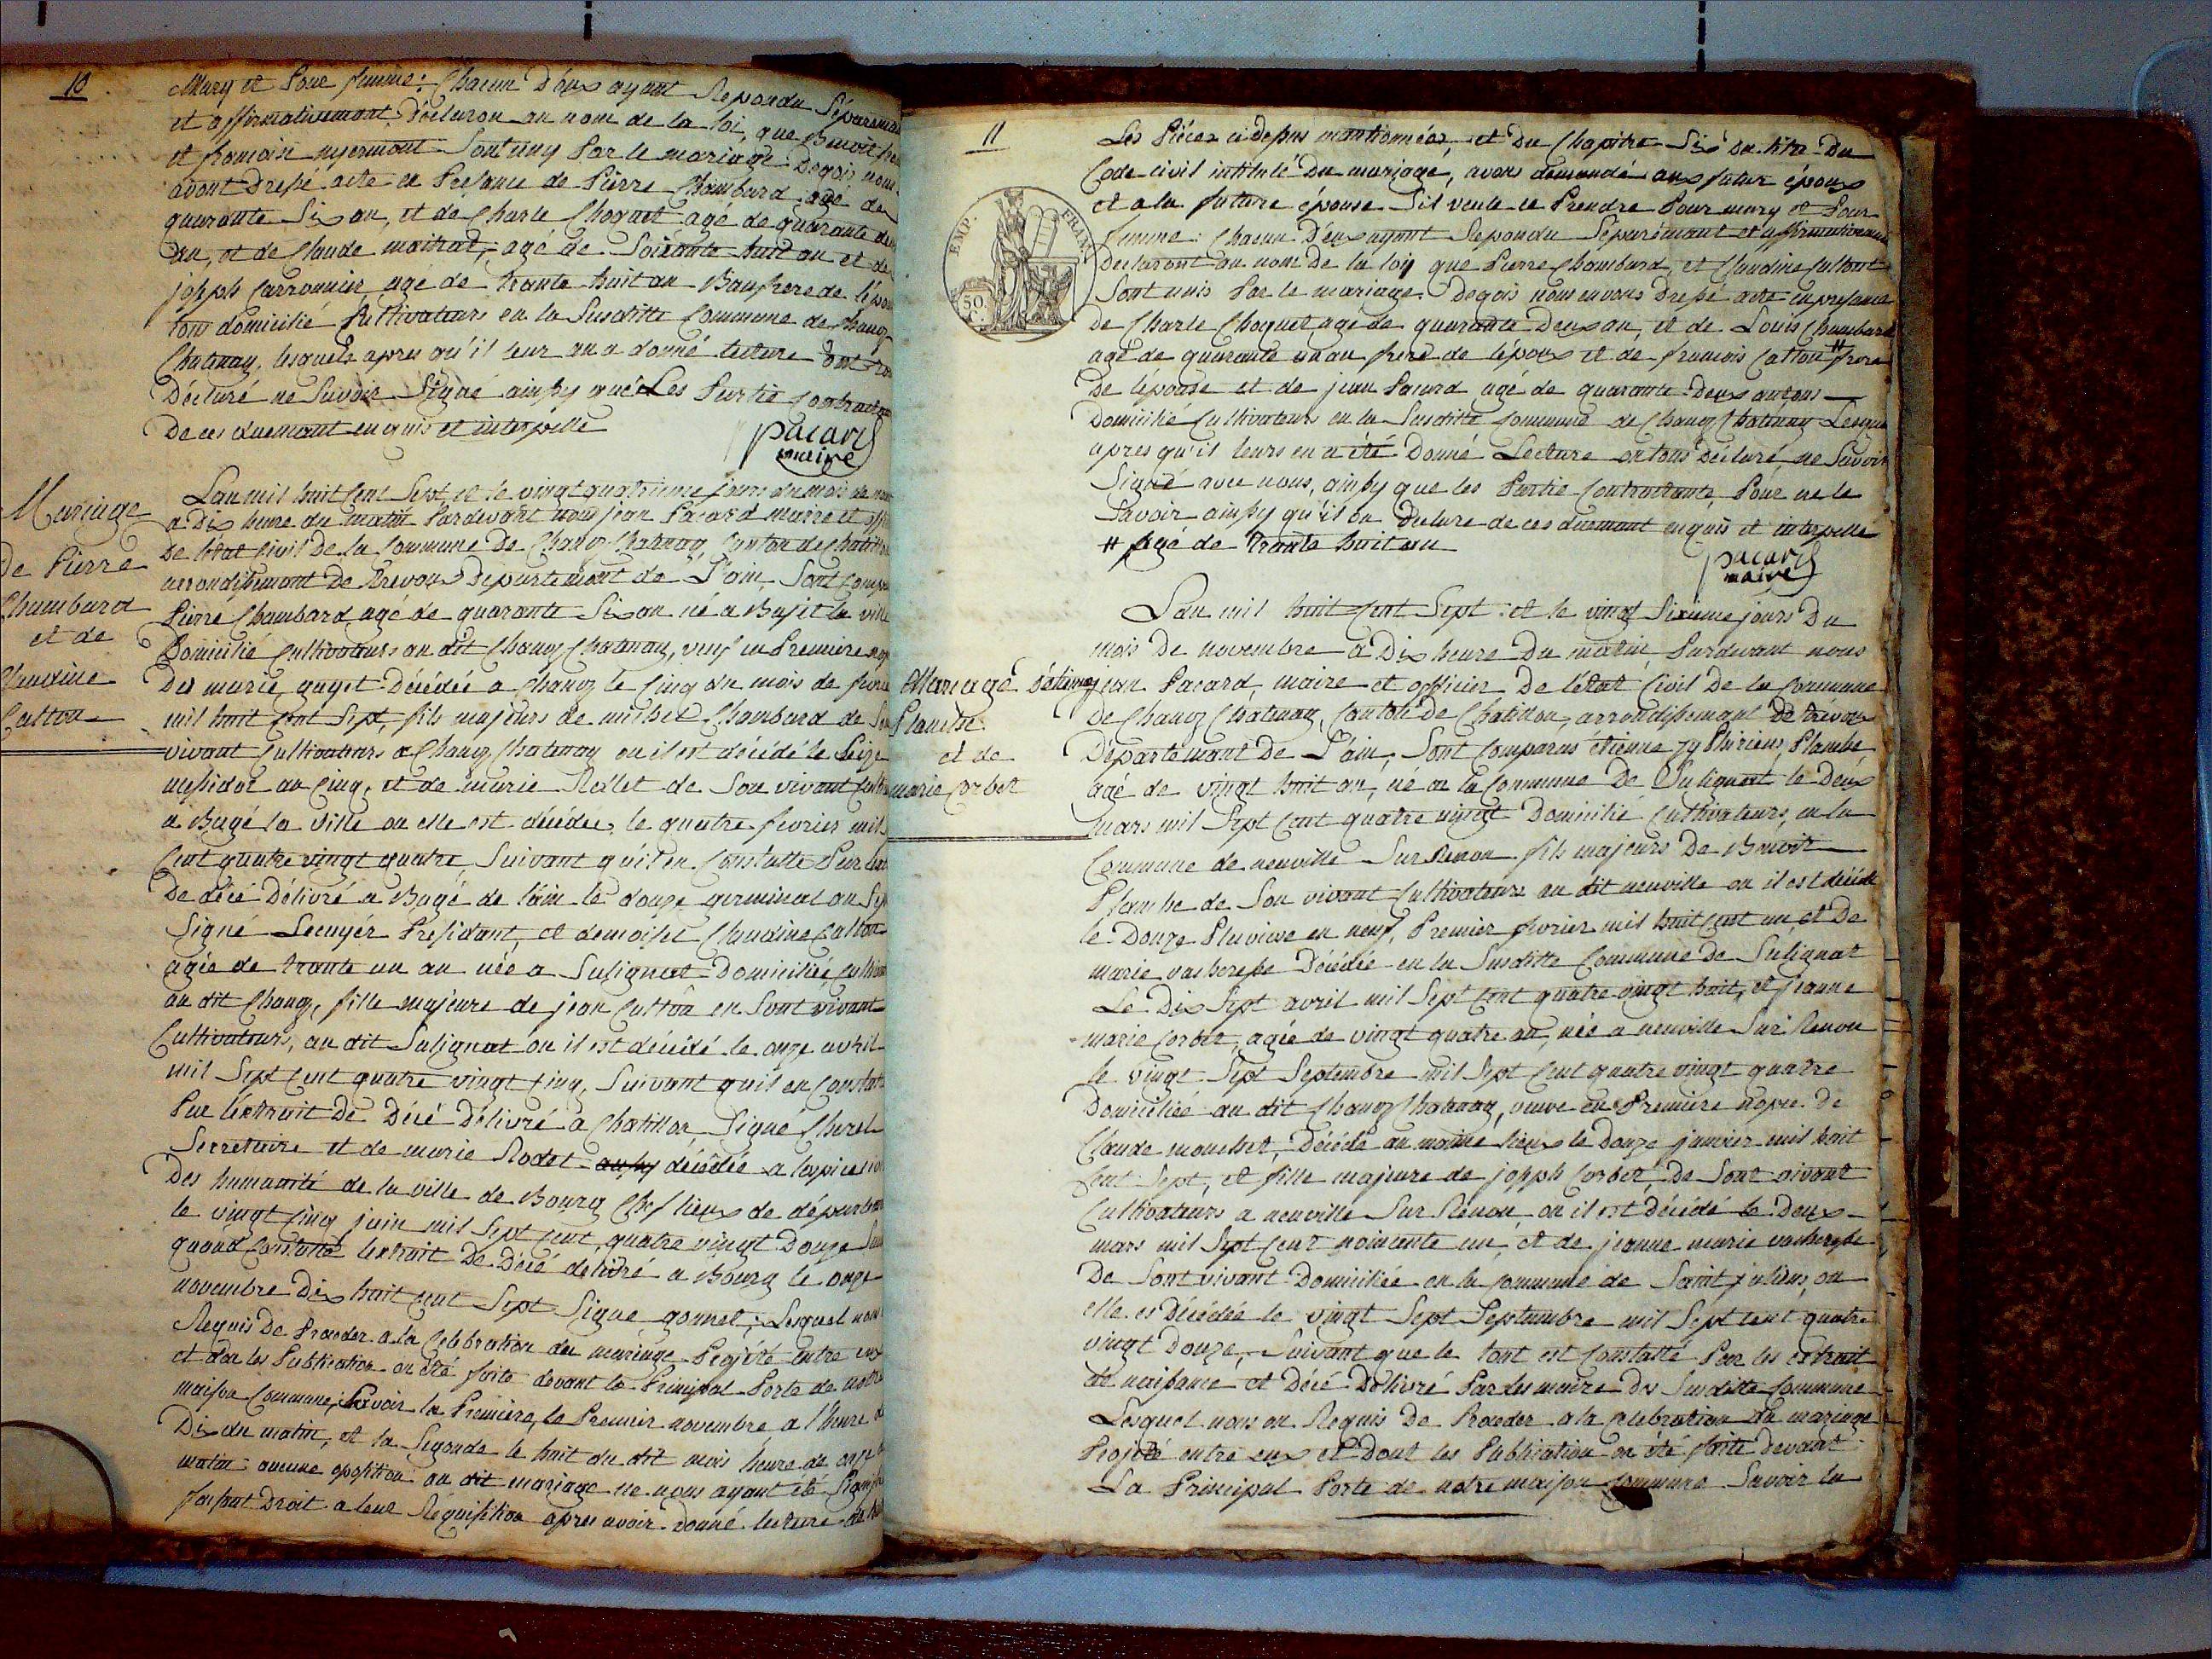 10
Mary et Pour femme: Chacun D'eux ayant Repondu Séparemant
et affirmativemant Décluron au nom de la loi, que Benoit
et francoise myermont Sont uny Par le mariage. Dequois nous
avont Dressé acte en Présance de Pierre Chambard agé de
quarante Six an, et de Charle Choquet agé de quarante deux
an, et de Claude moitrat, agé de Soixante huit an et de
joseph Carronnier agé de trante huit an Baufrere de l'épou
tous domicilié Cultivateurs en la Susditte Commune de Chanoz
Chatenay, lesquels apres qu'il leur an a donné lecture ont
Déclaré ne Savoir Signé ainssy que Les Partie Contractante
De ces duemant enquis et interpellé
pacard
maire
Mariage
De Pierre
Chambard
et de
Claudine
Catton
Lan mil huit Cent Sept, et le vingt quatrieme jours du mois de
a Dix heure du matin Pardevant nous jean Pacard maire et
De l'état Civil de la Commune De Chanoz Chatenay, Canton de Chatillon
arrondissemant De Trevoux Departemant de L'ain, Sont
Pierre Chambard agé de quarante Six an né a Bagé la ville
Domicilié Cultivateurs au dit Chanoz Chatenay, veuf en Premiere
De marie guyot Décédée a Chanoz le Cinq du mois de
mil huit Cent Sept, fils majeurs de michel Chambard de Son
vivant Cultivateurs a Chanoz Chatenay ou il est décédé le Seize
messidor an Cinq, et de marie Rollet de Son vivant
a Bagé la ville ou elle est décédée, le quatre fevrier mil
Cent quatre vingt quatre, Suivant qu'il en Constatte Par
De décé Délivré a Bagé de l'ain le douze germinal an
Signé Lecuyér Présidant, et demoisel Claudine Catton
agée de trante un an née a Sulignat Domiciliée,
au dit Chanoz, fille majeure de jean Catton en Sont vivant
Cultivateurs, au dit Sulignat ou il est décédé le onze avril
mil Sept Cent quatre vingt Cinq, Suivant quil en Constate
Par l'extrait De Décé Délivré a Chatillon Signé Cherel
Secretaire et de marie Rodet aussy décédée a lospice
Des humanité de la ville de Bourg Chef lieux de départemant
le vingt Cinq juin mil Sept Cent, quatre vingt Douze
quand Constatte lextrait De Décé délivré a Bourg le onze
novembre Dix huit cent Sept Signé gonnet; Lesquel nous
Requis De Proceder a la Celebration du mariage Projété entre eux
et don les Publication on été faite devant la Principal Porte de notre
maison Commune, Savoir la Premiere, le Premier novembre a l'heure
Dix du matin, et la Segonde le huit du dit mois heure de onze
matin: aucune oposition au dit mariage ne nous ayant été Signifié
faisant Droit a leur Réquisition apres avoir Donné lecture de
11
EMP.
FRAN
50.
C.
Les Piéces cidessus mantionnées, et Du Chapitre Six Du titre Du
Code civil intitulé Du mariage, avons demandé aux futur époux
et a la future épouse Sil veule ce Prendre Pour mary et Pour
femme: Chacun D'eux ayant Repondu Séparémant et affirmativemant
Declaront au nom De la loy que Pierre Chambard, et Claudine Catton
Sont unis Par le mariage. Dequois nous avons Dressé acte en presance
De Charle Choquet agé de quarante Deux an, et de Louis Chambard
agé de quarante un an frere de l'époux et de francois Catton # frere
De l'épouse et de jean Pacard agé de quarante Deux an tous
Domicilié Cultivateurs en la Susditte Commune de Chanoz Chatenay Lesquel
apres qu'il leurs en a été Donné Lecture on tous Déclaré ne Savoir
Signé avec nous, ainssy que les Partie Contractante Pour ne le
Savoir ainssy qu'il on Declare de ces duemant enquis et interpellé
# agé de trante huit an
pacard
maire
Mariage d'étienne
Planche
et de
marie Corbet
Lan mil huit Cent Sept: et le vingt Sixieme jours Du
mois De novembre a Dix heure Du matin Pardevant nous
jean Pacard, maire et officier De l'état Civil De la Commune
De Chanoz Chatenay, Canton De Chatillon, arrondissemant De trevoux
Departemant De L'ain, Sont Comparus étienne Planche,
agé de vingt huit an, né en la Commune De Sulignat le Deux
mars mil Sept Cent quatre vingt Domicilié Cultivateurs, en la
Commune de neuville Sur Renon fils majeurs De Benoit
Planche de Son vivant Cultivateurs au dit neuville ou il est décédé
le Douze Pluviose en neuf, Premier fevrier mil huit Cent un, et De
marie vacheresse Décédée en la Susditte Commune De Sulignat
Le Dix Sept avril mil Sept Cent quatre vingt huit, et jeanne
marie Corbet, agée de vingt quatre an, née a neuville Sur Renon
le vingt Sept Septembre mil Sept Cent quatre vingt quatre
Domiciliée au dit Chanoz Chatenay, veuve en Premiere nopce De
Claude mouchet, Décédé au maime lieux le Douze janvier mil huit
Cent Sept, et fille majeure de joseph Corbet, De Sont vivant
Cultivateurs a neuville Sur Renon, ou il est Décédé le Deux
mars mil Sept Cent nonnente un, et de jeanne marie vacheresse
De Sont vivant Domiciliée en la Commune de Saint julien, ou
elle es Décédée le vingt Sept Septembre mil Sept Cent quatre
vingt Douze, Suivant que le tout est Constatté Par les extrait
de naissance et Décé Délivré Par les maire Des Susditte Commune
Lesquel nous on Requis De Proceder a la Celebration du mariage
Projété entre eux et Dont les Publication on été faite Devant
La Principal Porte de notre maison Commune Savoir la